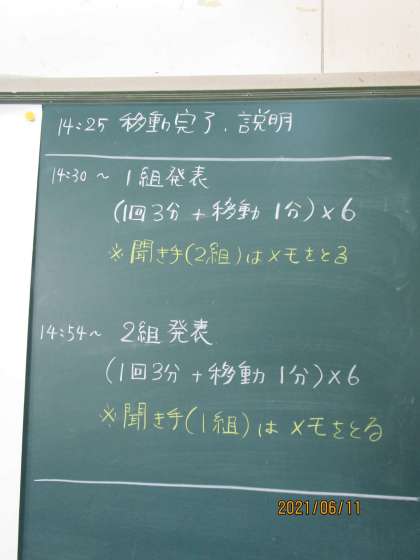 14:25 移動完了、説明
14:30～ 1組発表
(1回3分+移動1分)×6
※聞き手(2組)はメモをとる
14:54～ 2組発表
(1回3分+移動1分)×6
※聞き手(1組)はメモをとる
2021/06/11